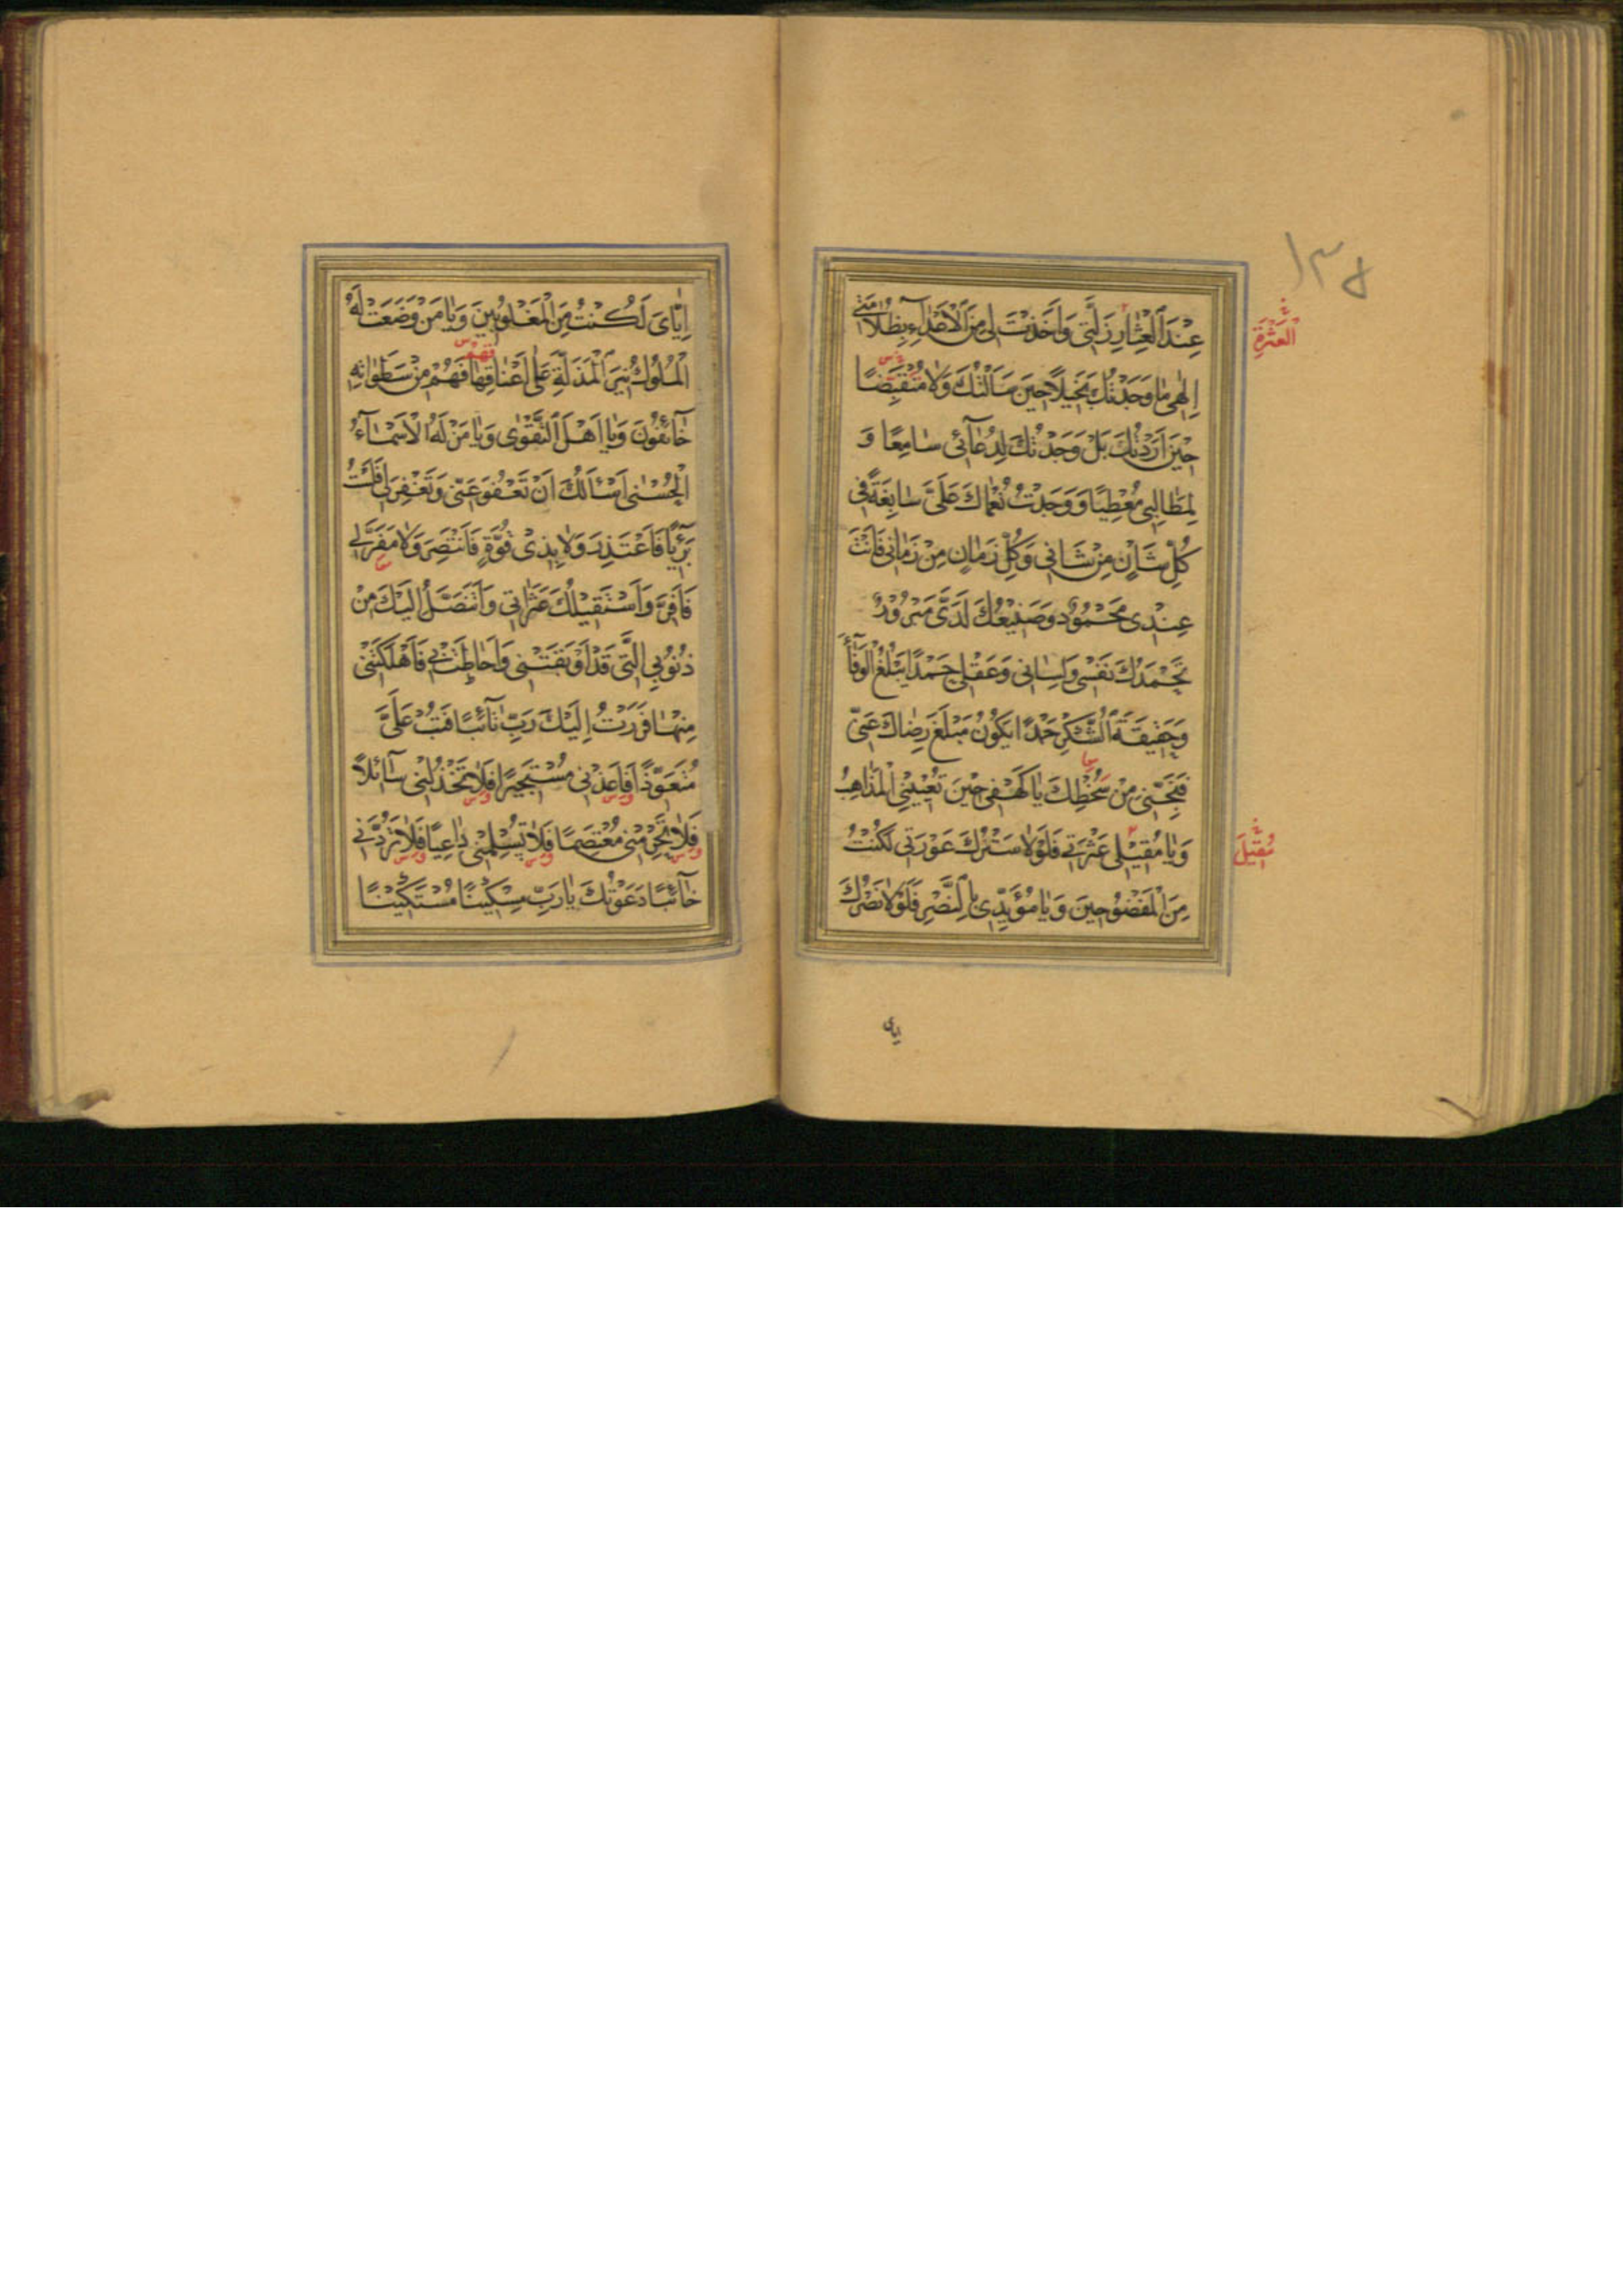 ١٣٥
عِنْدَ الْعِثَارِ زَلَّتِي وَاَخَذْتَ لِي مِنَ الْاَعْدَآءِ بِظُلَامَتِي
الْعَثْرَةِ
اِلٰهِي مَا وَجَدْتُكَ بَخِيلًا حِينَ سَاَلْتُكَ وَلَا مُنْقَبِضًا
حِيْنَ اَرَدْتُكَ بَلْ وَجَدْتُكَ لِدُعَآئِي سَامِعًا وَ
لِمَطَالِبِي مُعْطِيًا وَ وَجَدْتُ نُعْمَاكَ عَلَىَّ سَابِغَةً فِي
كُلِّ شَاْنٍ مِنْ شَاْنِي وَكُلِّ زَمَانٍ مِنْ زَمَانِي فَاَنْتَ
عِنْدِى مَحْمُوْدٌ وَصَنِيْعُكَ لَدَىَّ مَبْرُوْرٌ
تَحْمَدُكَ نَفْسِي وَلِسَانِي وَعَقْلِي حَمْدًا يَبْلُغُ الْوَفَآءَ
وَحَقِيقَةَ الشُّكْرِ حَمْدًا يَكُوْنُ مَبْلَغَ رِضَاكَ عَنِّي
فَنَجِّنِي مِنْ سُخْطِكَ يَا كَهْفِي حِيْنَ تُعْيِيْنِي الْمَذَاهِبُ
وَيَا مُقِيْلِي عَثْرَتِي فَلَوْلَا سَتْرُكَ عَوْرَتِي لَكُنْتُ
مُقِيْلَ
مِنَ الْمَفْضُوْحِينَ وَيَا مُؤَيِّدِى بِالنَّصْرِ فَلَوْلَا نَصْرُكَ
اياى
اِيَّاىَ لَكُنْتُ مِنَ الْمَغْلُوْبِينَ وَيَا مَنْ وَضَعَتْ لَهُ
فَهُمْ
الْمُلُوْكُ نِيرَ الْمَذَلَّةِ عَلٰى اَعْنَاقِهَا فَهُمْ مِنْ سَطَوَاتِهِ
خَآئِفُوْنَ وَيَا اَهْلَ التَّقْوٰى وَيَا مَنْ لَهُ الْاَسْمَآءُ
الْحُسْنٰى اَسْئَالُكَ اَنْ تَعْفُوَ عَنِّي وَتَغْفِرَ لِي فَلَسْتُ
بَرِيْئًا فَاَعْتَذِرَ وَلَا بِذِىْ قُوَّةٍ فَاَنْتَصِرَ وَلَا مَفَرَّ لِي
فَاَفِرَّ وَاَسْتَقِيْلُكَ عَثَرَاتِي وَاَتَنَصَّلُ اِلَيْكَ مِنْ
ذُنُوْبِي الَّتِي قَدْ اَوْبَقَتْنِي وَاَحَاطَتْ بِي فَاَهْلَكَتْنِي
مِنْهَا فَرَرْتُ اِلَيْكَ رَبِّ تَآئِبًا فَتُبْ عَلَىَّ
مُتَعَوِّذًا فَاَعِذْنِي مُسْتَجِيرًا فَلَا تَخْذُلْنِي سَآئِلًا
فَلَا تَحْرِمْنِي مُعْتَصِمًا فَلَا تُسْلِمْنِي دَاعِيًا فَلَا تَرُدَّنِي
خَآئِبًا دَعَوْتُكَ يَا رَبِّ مِسْكِيْنًا مُسْتَكِيْنًا